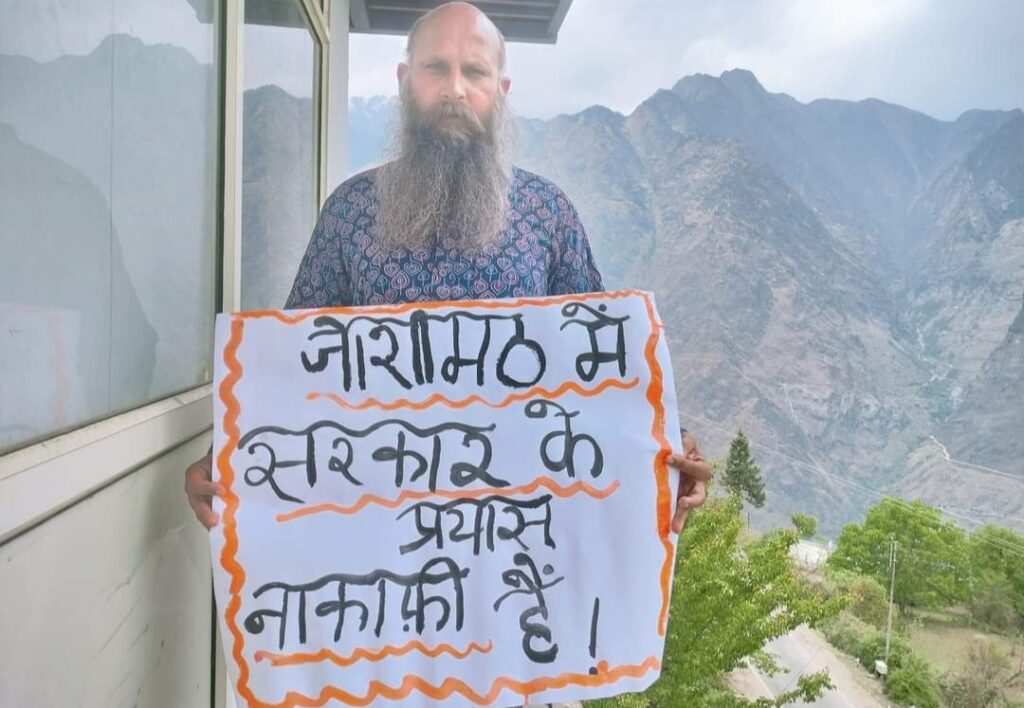 जोशीमठ में
सरकार के
प्रयास
नाकाफ़ी हैं!